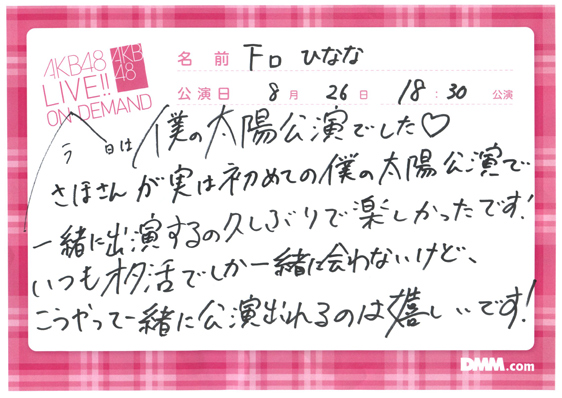 AKB48
LIVE!!
ON DEMAND
AKB
48
名前 下口 ひなな
公演日 8月 26日 18:30 公演
今日は 僕の太陽公演でした♡
さほさんが実は初めての僕の太陽公演で
一緒に出演するの久しぶりで楽しかったです!
いつもオタ活でしか一緒に会わないけど、
こうやって一緒に公演出れるのは嬉しいです!
DMM.com